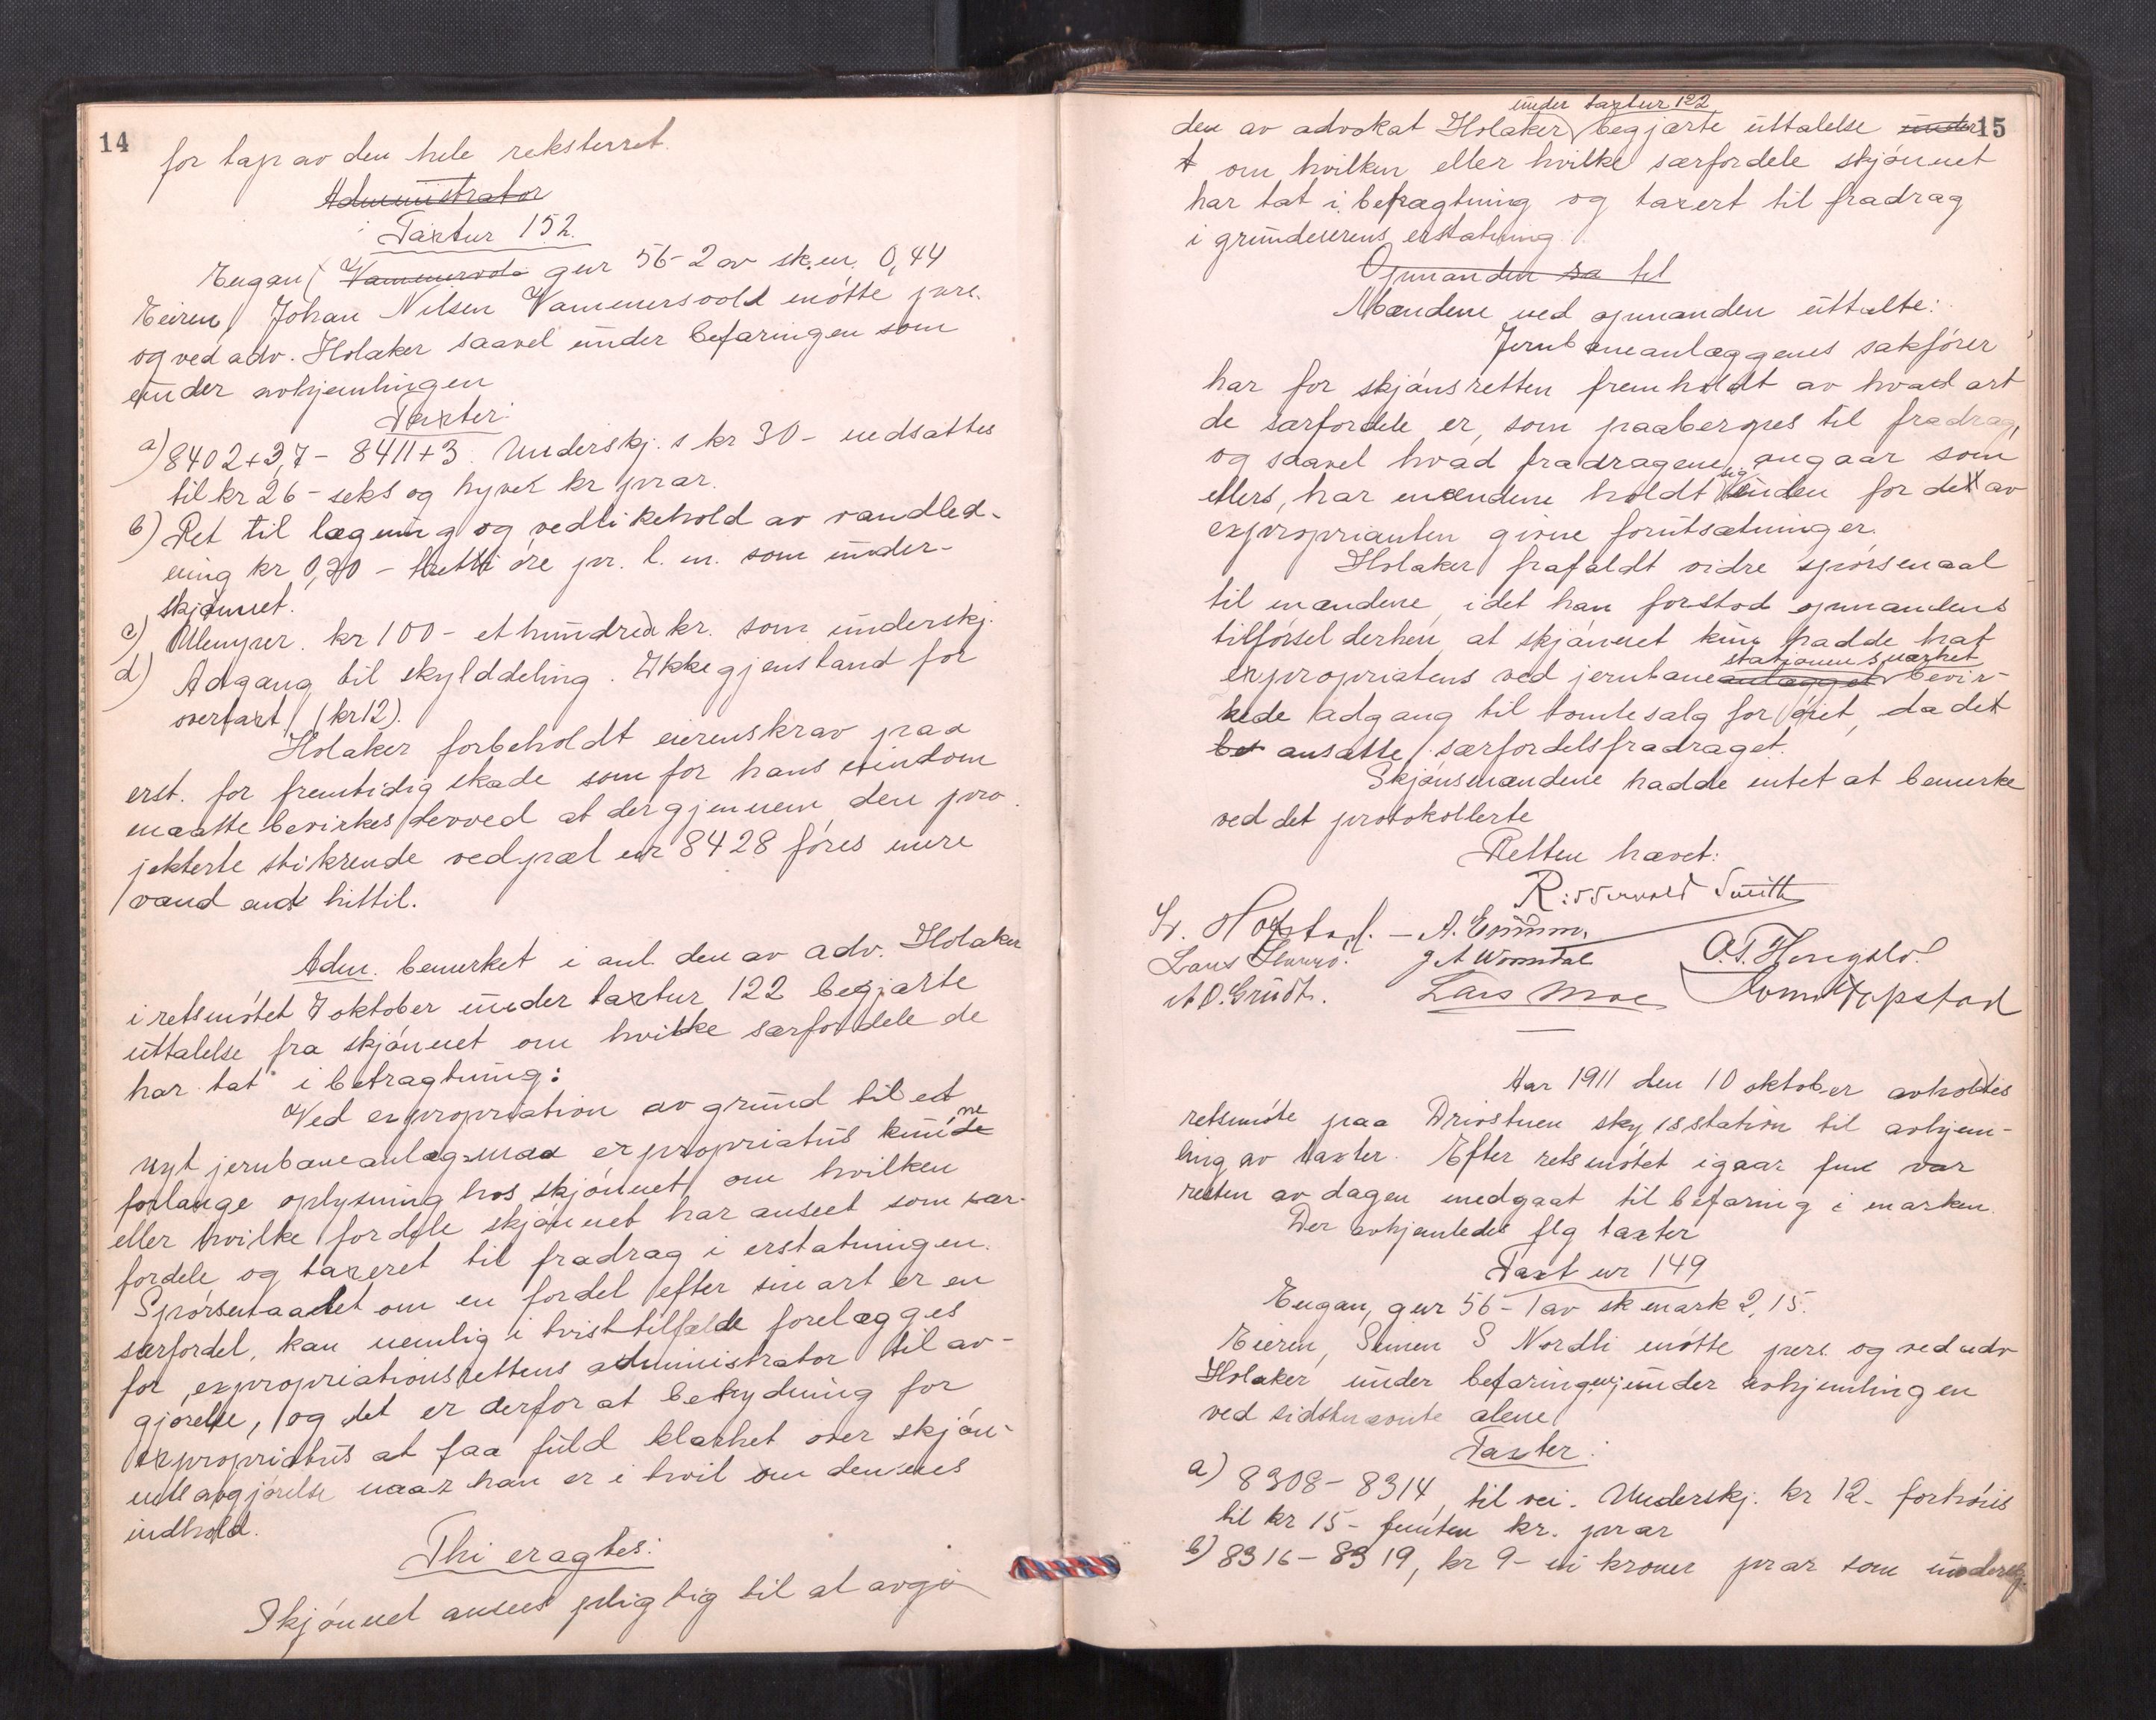 14
for tap av den hele reksterret.
Administrator
Taxtnr 152.
Engan, Vammervold gnr 56-2 av sk.m. 0,44
Eieren, Johan Nilsen Vammersvold møtte pers.
og ved adv. Holaker saavel under befaringen som
under avhjemlingen
Taxter:
a) 8402+3,7 - 8411+3. Underskj.s kr 30- nedsattes
til kr 26 - seks og tyve kr pr ar.
b) Ret til lægning og vedlikehold av vandled-
ning kr 0,30 - tretti øre pr. l. m. som under-
skjønnet.
c) Ulemper. kr 100 - et hundrede kr. som underskj.
d) Adgang til skylddeling. Ikke gjenstand for
overtaxt (kr 12).
Holaker forbeholdt eierens krav paa
erst. for fremtidig skade som for hans eiendom
maatte bevirkes derved at der gjennem den pro-
jekterte stikrende ved pæl nr 8428 føres mere
vand end hittil.
Adm. bemerket i anl. den av adv. Holaker
i retsmøtet 7 oktober under taxtnr 122 begjærte
uttalelse fra skjønnet om hvilke særfordele de
har tat i betragtning:
Ved expropriation av grund til et
nyt jernbaneanlæg maa expropriatus kunne
forlange oplysning hos skjønnet om hvilken
eller hvilke fordele skjønnet har anseet som sær-
fordele og taxeret til fradrag i erstatningen.
Spørsmaalet om en fordel efter sin art er en
særfordel, kan nemlig i tvisttilfælde forelægges
for expropriationsrettens administrator til av-
gjørelse, og det er derfor at betydning for
expropriatus at faa fuld klarhet over skjøn-
nets avgjørelse naar han er i tvil om dennes
indhold.
Thi eragtes:
Skjønnet ansees pligtig til at avgi
15
under taxtnr 122
den av advokat Holaker begjærte uttalelse under
t om hvilken eller hvilke særfordele skjønnet
har tat i betragtning og taxert til fradrag
i grundeierens erstatning.
Opmanden sa til
Mændene ved opmanden uttalte:
Jernbaneanlæggenes sakfører
har for skjønsretten fremholdt av hvad art
de særfordele er, som paaberopes til fradrag,
og saavel hvad fradragene angaar som
ellers, har mændene holdt sig inden for det av
exproprianten givne forutsætninger.
Holaker frafaldt vidre spørsmaal
til mændene, idet han forstod opmandens
tilførsel derhen, at skjønnet kun hadde hat
expropriatens ved jernbaneanlægget stationens nærhet bevir-
kede adgang til tomtesalg for øiet, da det
be ansatte særfordelsfradraget.
Skjønsmændene hadde intet at bemerke
ved det protokollerte
Retten hævet:
Smith
A. O. Grudt.
Lars Moe
Aar 1911 den 10 oktober avholdtes
retsmøte paa Drivstuen skysstation til avhjem-
ling av taxter. Efter retsmøtet igaar var
resten av dagen medgaat til befaring i marken.
Der avhjemledes flg taxter
Taxt nr 149
Engan, gnr 56-1 av sk mark 2,15.
Eieren, Simen S Nordli møtte pers. og ved adv
Holaker under befaringen, under avhjemlingen
ved sidstnævnte alene
Taxter:
a) 8308 - 8314, til vei. Underskj. kr 12- forhøies
til kr 15 - femten kr. pr ar
b) 8316 - 8319, kr 9 - ni kroner pr ar som underskj.